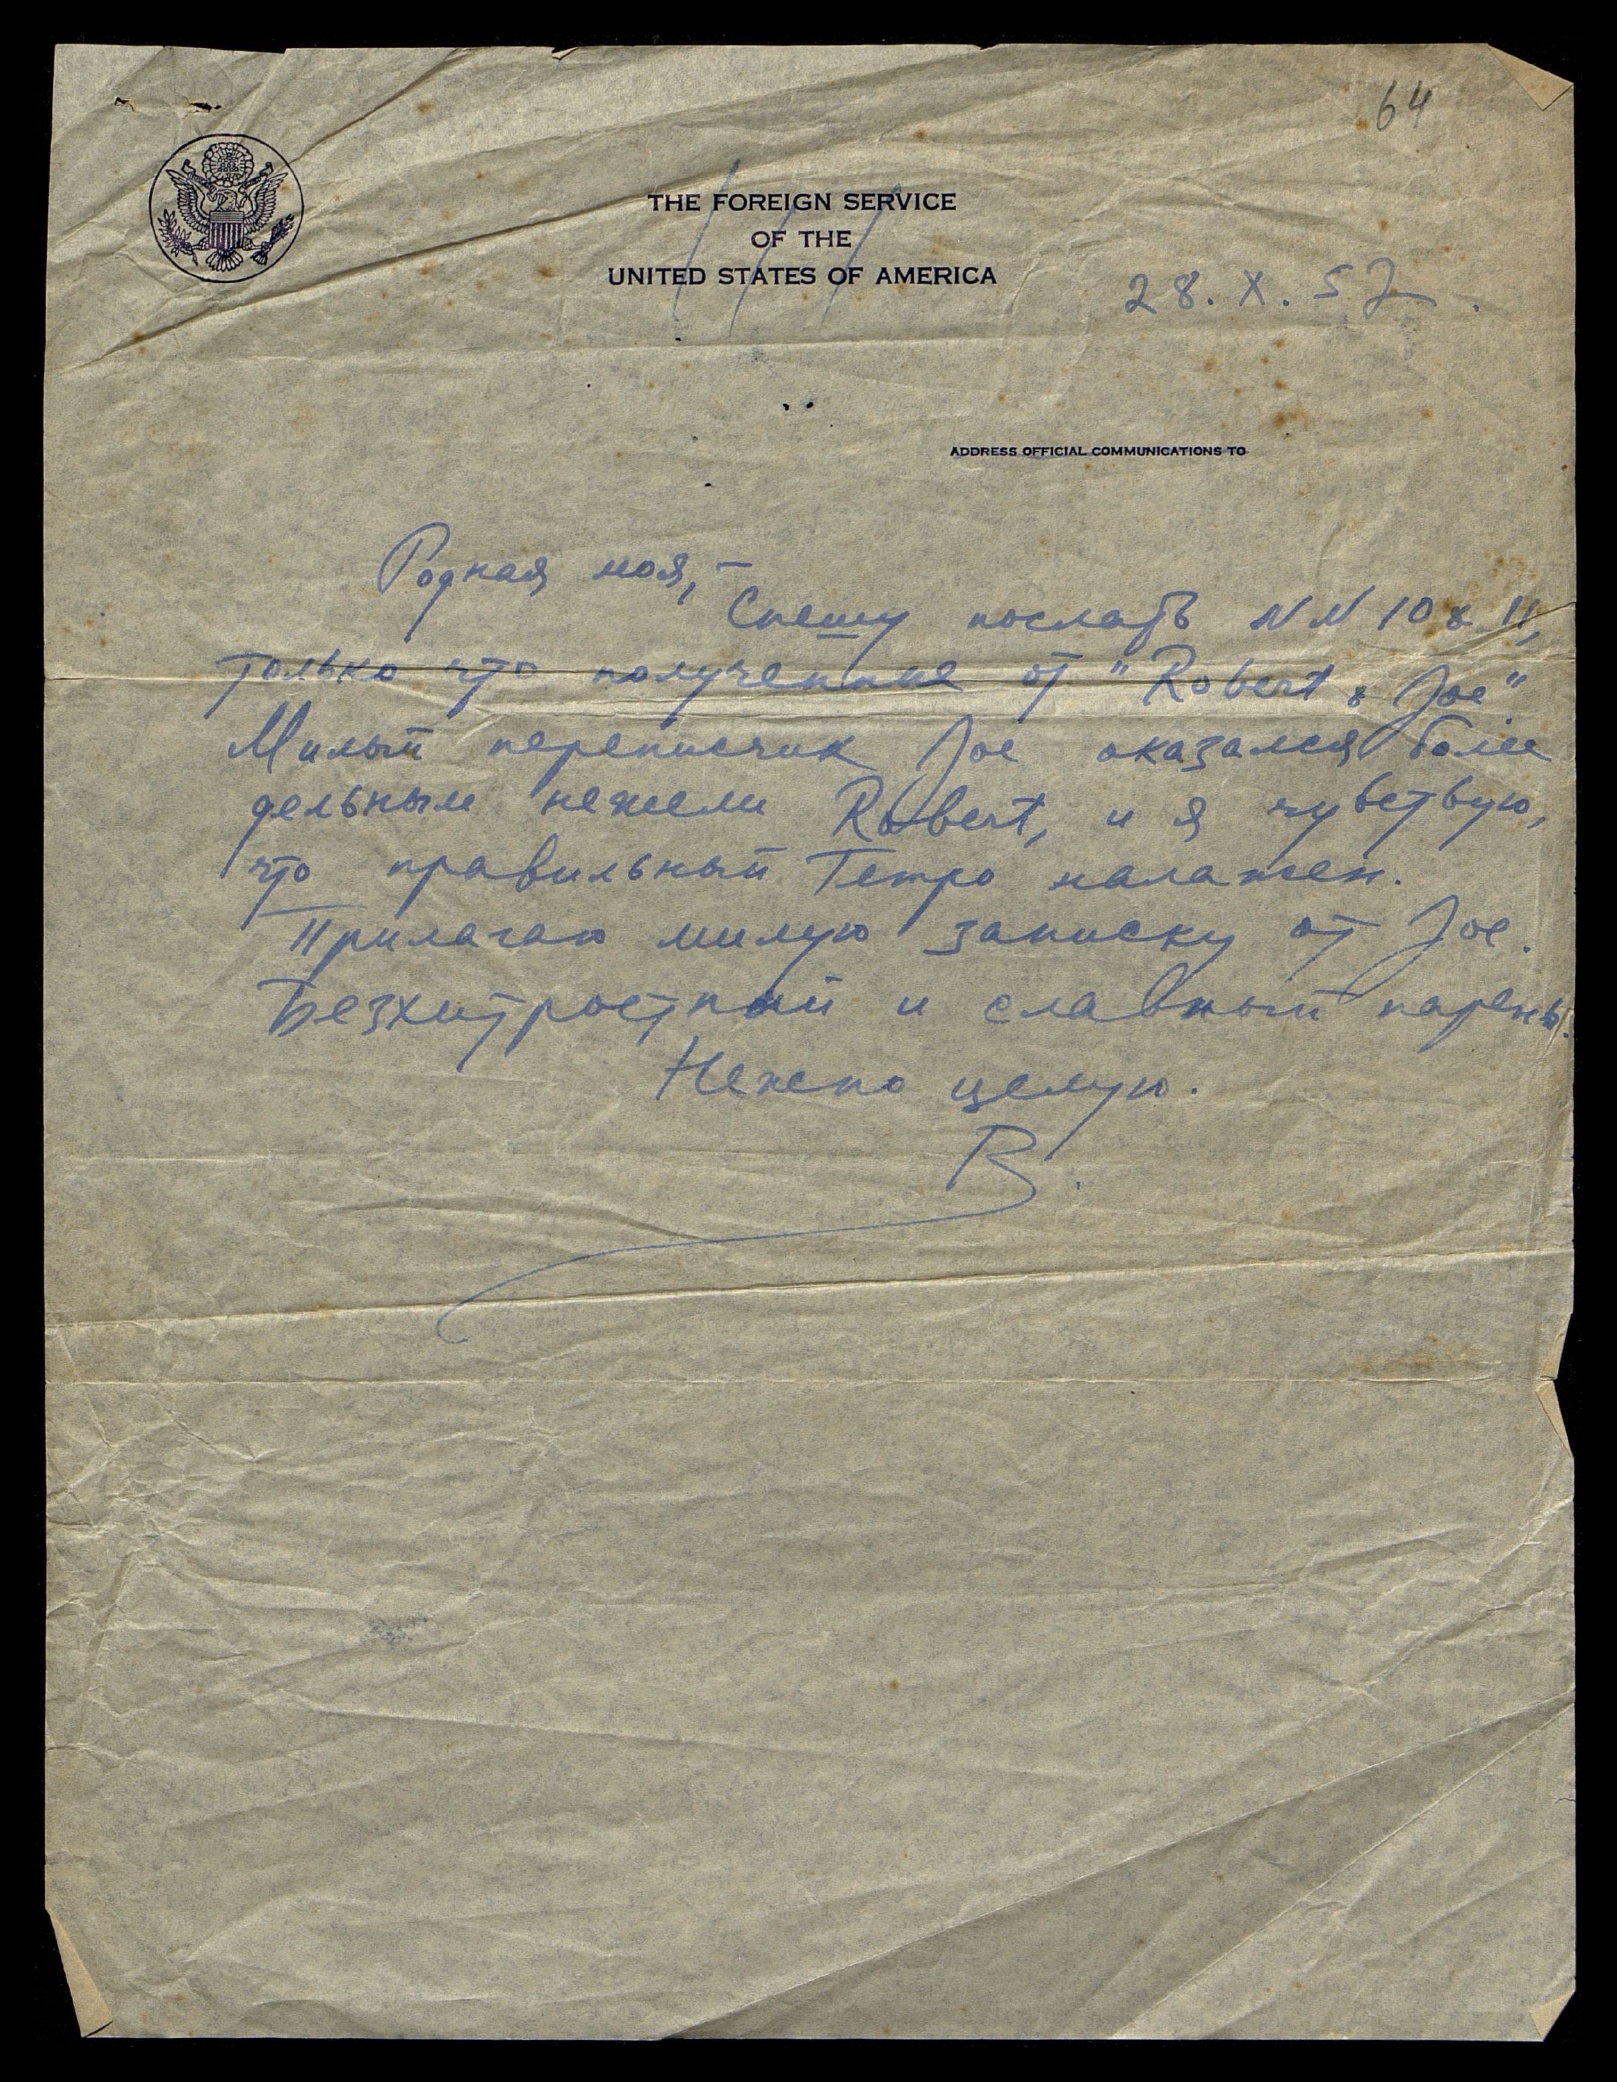 64
THE FOREIGN SERVICE
OF THE
UNITED STATES OF AMERICA
28. X. 52.
ADDRESS OFFICIAL COMMUNICATIONS TO
Родная моя, —
Спешу послать NN 10 & 11,
только что полученные от "Robert & Joe"
Милый переписчик Joe оказался более
дельным нежели Robert, и я чувствую,
что правильный Темпо налажен.
Прилагаю милую записку от Joe.
Безхитростный и славный парень.
Нежно целую.
В.